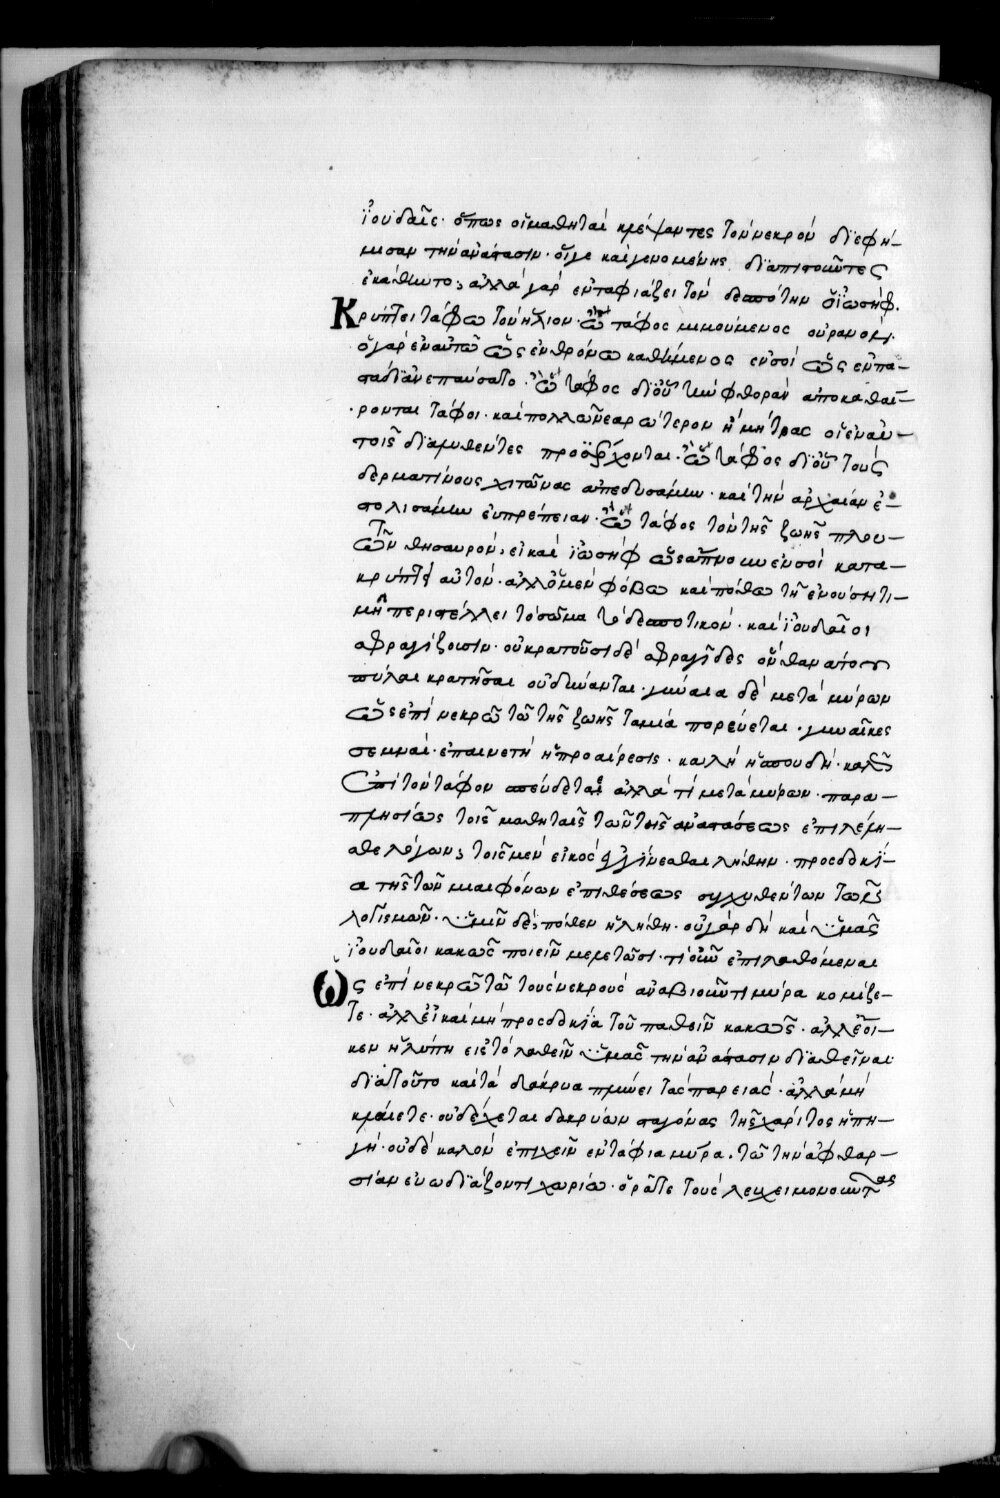 ϊουδαῖε· ὅπως οἱ μαθηταὶ κλέψαντες τὸν νεκρὸν διεφή-
μισαν τὴν ἀνάστασιν· οἵγε καὶ γενομένης διαπιστοῦντες
ἐκάθηντο; ἀλλὰ γὰρ ἐνταφιάζει τὸν δεσπότην ὁ ἰωσήφ.
Κρύπτει τάφω τὸν ἥλιον· ὢ τάφος μιμούμενος οὐρανόν·
ὁ γὰρ ἐν αὐτῶ ὡς ἐν θρόνω καθήμενος ἐν σοὶ ὡς ἐν πα-
στάδι ἀνεπαύσατο· ὢ τάφος δι' οὗ τὴν φθορὰν ἀποκαθαί-
ρονται τάφοι· καὶ πολλῶ νεαρώτερον ἢ μήτρας οἱ ἐν αὐ-
τοῖς διαλυθέντες προέρχονται· ὢ τάφος δι' οὗ τοὺς
δερματίνους χιτῶνας ἀπεδυσάμην· καὶ τὴν ἀρχαίαν ἐ-
στολισάμην εὐπρέπειαν· ὢ τάφος τὸν τῆς ζωῆς πλου-
τῶν θησαυρόν· εἰ καὶ ἰωσὴφ ὡς ἄπνουν ἐν σοὶ κατα-
κρύπτει αὐτόν· ἀλλ' ὅμεν φόβω καὶ πόθω τῆ ἐνούση τι-
μῆ περιστέλλει τὸ σῶμα τὸ δεσποτικόν· καὶ ϊουδαῖοι
σφραγίζουσιν· οὐ κρατοῦσι δὲ σφραγῖδες ὃν θανάτου
πύλαι κρατῆσαι οὐ δύνανται· γύναια δὲ μετὰ μύρων
ὡς ἐπὶ νεκρῶ τῶ τῆς ζωῆς ταμία πορεύεται· γυναῖκες
σεμναί· ἐπαινετὴ ἡ προαίρεσις· καλὴ ἡ σπουδή· καλῶς
ἐπὶ τὸν τάφον σπεύδεται ἀλλὰ τί μετὰ μύρων· παρα-
πλησίως τοῖς μαθηταῖς τῶν τῆς ἀναστάσεως ἐπιλέλη-
σθε λόγων; τοῖς μὲν εἰκὸς γίνεσθαι λήθην· προσδοκί-
α τῆς τῶν μιαιφόνων ἐπιθέσεως συγχυθέντων τῶν
λογισμῶν· ὑμῖν δὲ πόθεν ἡ λήθη· οὐ γὰρ δὴ καὶ ὑμᾶς
ϊουδαῖοι κακῶς ποιεῖν μελετῶσι· τί οὖν ἐπιλαθόμεναι
Ὡς ἐπὶ νεκρῶ τῶ τοὺς νεκροὺς ἀναβιοῦντι μύρα κομίζε-
τε· ἀλλ' εἰ καὶ μὴ προσδοκία τοῦ παθεῖν κακῶς· ἀλλ' ἔοι-
κεν ἡ λύπη εἰς τὸ λαθεῖν ὑμᾶς τὴν ἀνάστασιν διαθεῖναι
διὰ τοῦτο καὶ τὰ δάκρυα πλύνει τὰς παρειάς· ἀλλὰ μὴ
κλαίετε· οὐ δέχεται δακρύων σταγόνας τῆς χάριτος ἡ πη-
γή· οὐδὲ καλὸν ἐπιχεῖν ἐντάφια μύρα· τῶ τὴν ἀφθαρ-
σίαν εὐωδιάζοντι χωρίω· ὁρᾶτε τοὺς λευχειμονοῦντας